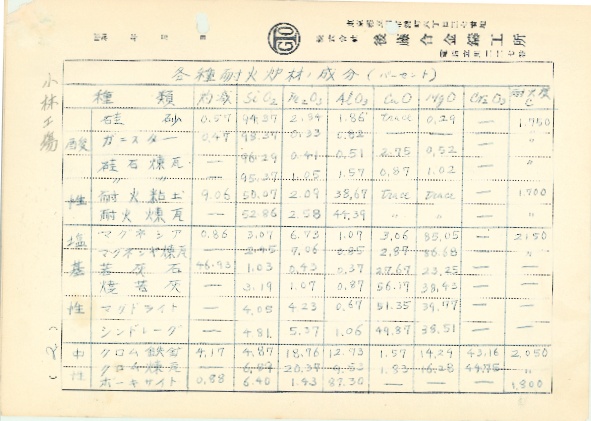 株式会社 後藤合金鋳工所
小林工場
各種耐火炉材ノ成分 (パーセント)
種類 灼減 SiO2 Fe2O3 Al2O3 CaO MgO Cr2O3 耐火度 °C
硅砂 0.57 94.37 2.54 1.86 Trace 0.29 — 1.750
酸 ガニスター 0.47 0.33 〃
硅石煉瓦 — 96.29 0.49 0.51 2.75 0.52 — 〃
〃 — 95.37 1.05 1.57 0.87 1.02 — 〃
性 耐火粘土 9.06 50.07 2.09 38,67 Trace Trace — 1,700
耐火煉瓦 — 52.86 2.58 44.39 〃 〃 — 〃
塩 マグネシア 0.86 3.07 6.73 1.07 3.06 85,05 — 2150
マグネシヤ煉瓦 — 7.06 0.85 2.87 86.68 — 〃
基 苦灰石 46.93 1.03 0.43 0.37 27.67 23,25 — —
焼苦灰 — 3.19 1.07 0.87 56.17 38,43 — —
性 マグドライト — 4.05 4.23 0.67 51.35 39.77 — —
シンドレーグ — 4.81 5.37 1.06 49.87 38,51 — —
中 クロム鉄鉱 4.17 4.87 18,76 12.73 1.57 14.29 43.16 2,050
クロム煉瓦 — 20.37 1.83 16.28 44.75 〃
性 ボーキサイト 0.88 6.40 1.43 87.30 — — — 1,800
(2)